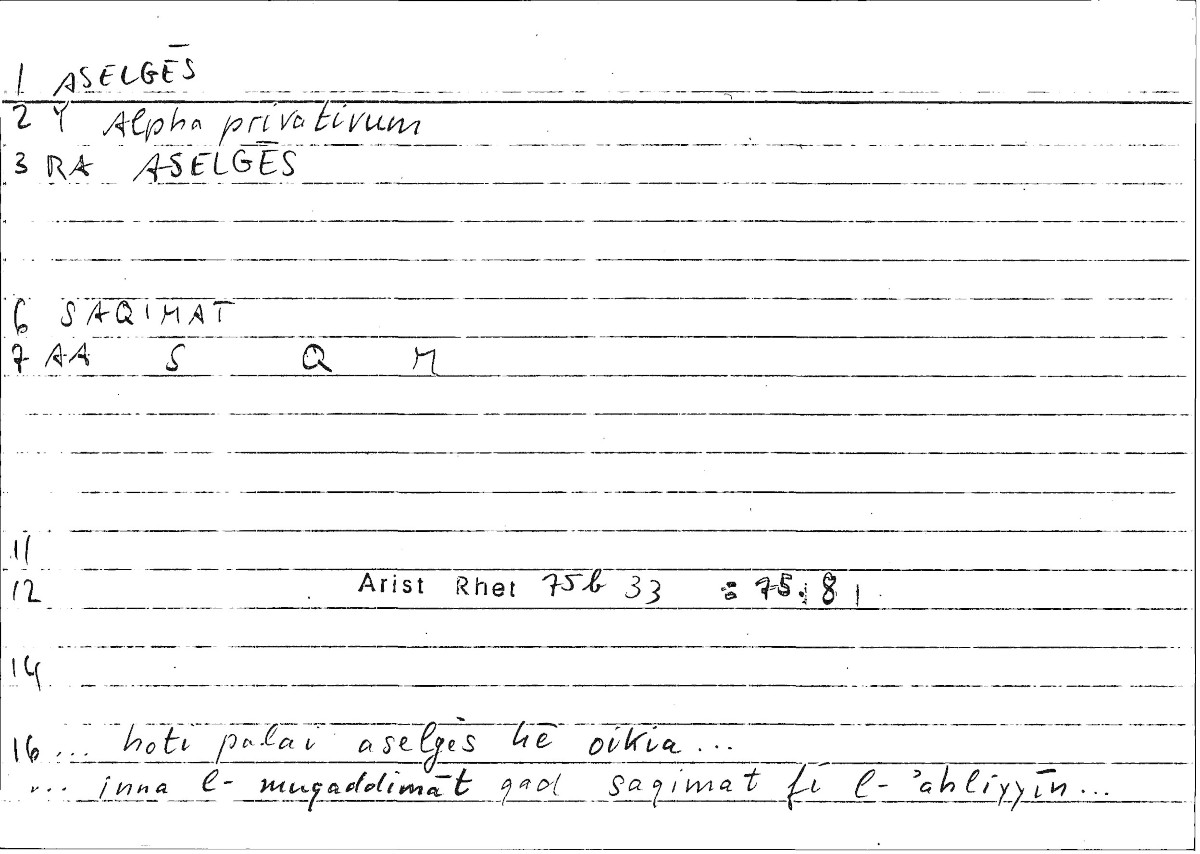 1 ASELGĒS
2 Y Alpha privativum
3 RA ASELGĒS
6 SAQIMAT
7 AA S Q M
11
12 Arist Rhet 75b 33 = 75.81
14
16 ... hoti palai aselgēs hē oikia ...
... inna l- muqaddimāt qad saqimat fī l- ʾahliyyīn ...